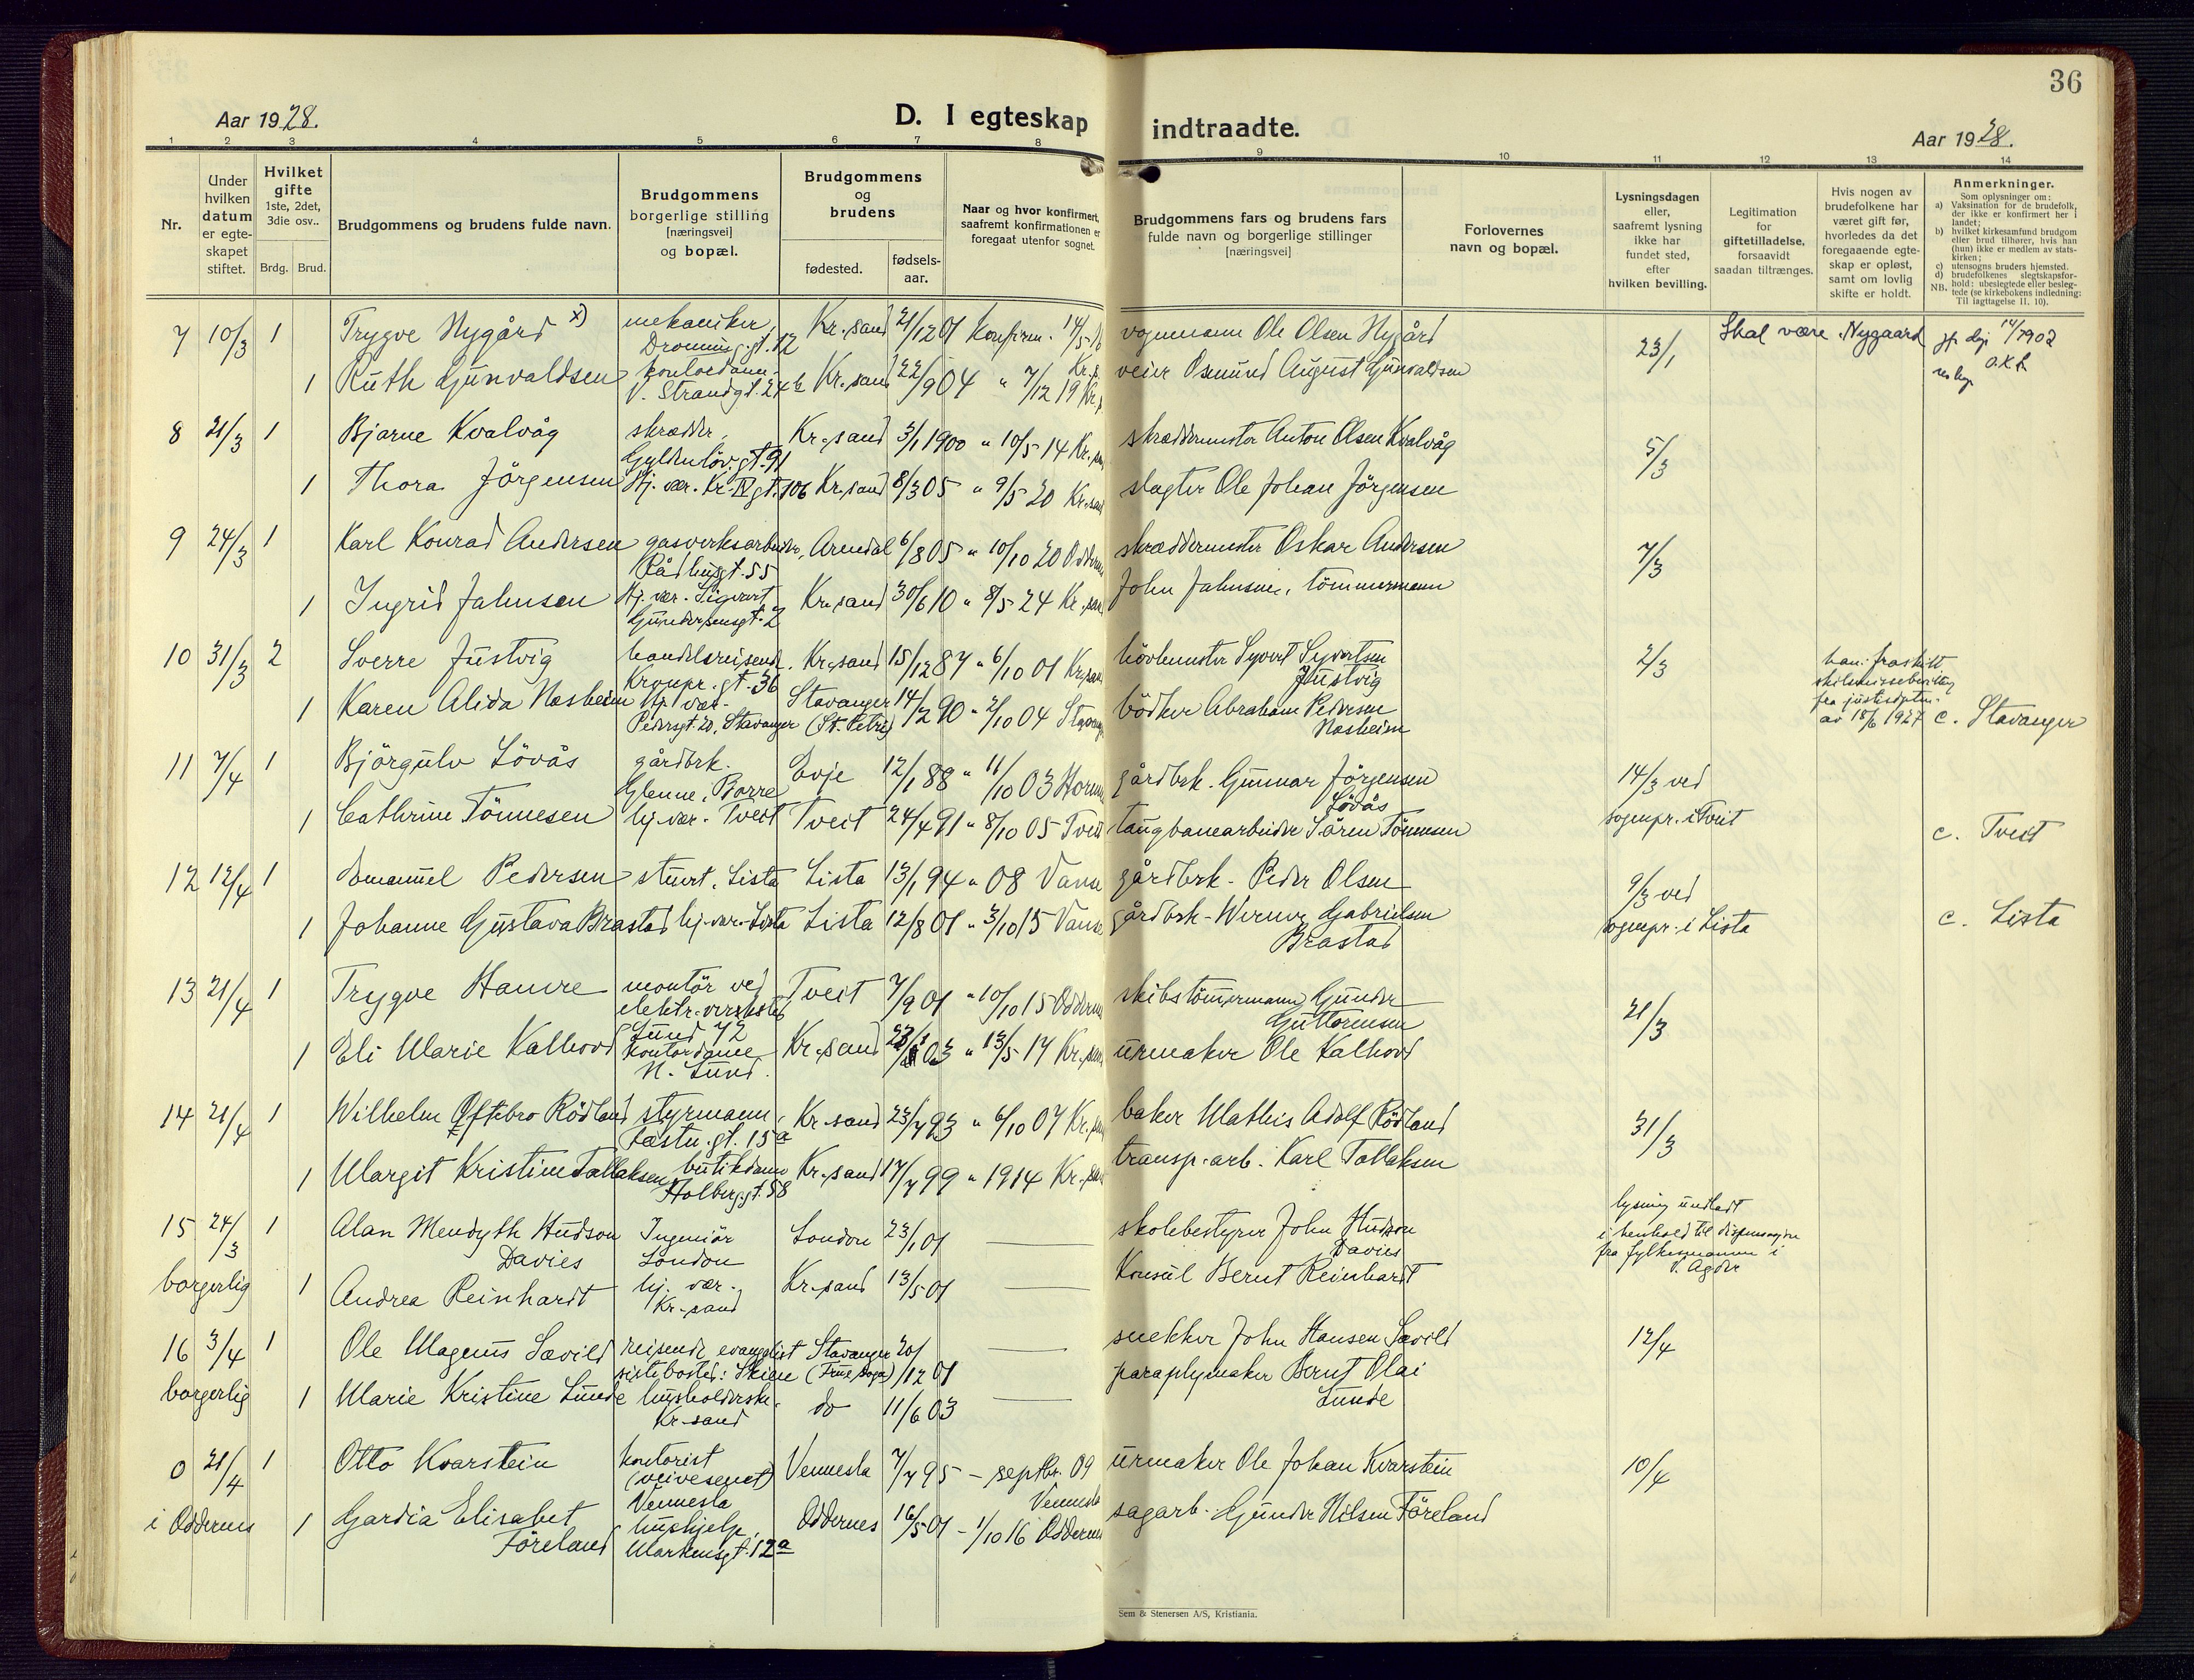 36
Aar 1928.
D. I egteskap indtraadte.
Aar 1928.
1 2 3 4 5 6 7 8 9 10 11 12 13 14
Nr.
Under hvilken datum er egteskapet stiftet.
Hvilket gifte 1ste, 2det, 3die osv..
Brdg. Brud.
Brudgommens og brudens fulde navn.
Brudgommens borgerlige stilling [næringsvei] og bopæl.
Brudgommens og brudens
fødested.
fødsels-aar.
Naar og hvor konfirmert, saafremt konfirmationen er foregaat utenfor sognet.
Brudgommens fars og brudens fars fulde navn og borgerlige stillinger [næringsvei]
Forlovernes navn og bopæl.
Lysningsdagen eller, saafremt lysning ikke har fundet sted, efter hvilken bevilling.
Legitimation for giftetilladelse, forsaavidt saadan tiltrænges.
Hvis nogen av brudefolkene har været gift før, hvorledes da det foregaaende egteskap er opløst, samt om lovlig skifte er holdt.
Anmerkninger.
Som oplysninger om:
a) Vaksination for de brudefolk, der ikke er konfirmert her i landet;
b) hvilket kirkesamfund brudgom eller brud tilhører, hvis han (hun) ikke er medlem av statskirken;
c) utensogns bruders hjemsted.
d) brudefolkenes slegtskapsforhold: ubeslegtede eller beslegtede (se kirkebokens indledning: NB. Til iagttagelse II, 10).
7 10/3 1 Trygve Nygård x) mekaniker, Dronning.gt. 12 Kr.sand 21/12 01 Konfirm. 14/5 vognmann Ole Olsen Nygård 23/1 Skal være Nygaard jfr. dp. 14/1902
1 Ruth Gunvaldsen kontordame V. Strandgt. 24b Kr.sand 22/9 04 " 7/12 19 Kr.s veier Osmund August Gunvaldsen
8 21/3 1 Bjarne Kvalvåg skrædder, Gyldenløv.gt. 91 Kr.sand 3/1 1900 " 10/5 14 Kr.san skræddermester Anton Olsen Kvalvåg 5/3
1 Thora Jörgensen Hj.vær. Kr. IV gt. 106 Kr.sand 8/3 05 " 9/5 20 Kr.sand slagter Ole Johan Jörgensen
9 24/3 1 Karl Konrad Andersen gasverksarbeider, Rådhusgt. 55 Arendal 6/8 05 " 10/10 20 Oddern skræddermester Oskar Andersen 7/3
1 Ingrid Jahnsen Hj.vær. Sigvart Gundersensgt. 2 Kr.sand 30/6 10 " 8/5 24 Kr.san John Jahnsen, tömmermann
10 31/3 2 Sverre Justvig handelsreisende. Kronpr.gt. 36 Kr.sand 15/12 87 " 6/10 01 Kr.san hövlmester Syvert Syvertsen Justvig 2/3 han: fraskilt skilsmissebevilling fra justisdptm. av 18/6 1927
1 Karen Alida Næsheim Hj. vær. Pedersgt. 20, Stavanger Stavanger (St. Petri) 14/2 90 " 2/10 04 Stavang bödker Abraham Pedersen Næsheim c. Stavanger
11 7/4 1 Björgulv Lövås gårdbrk. Glenne, Borre Evje 12/1 88 " 11/10 03 Horn gårdbrk. Gunnar Jörgensen Lövås 14/3 ved
1 Cathrine Tönnesen hj.vær. Tveit Tveit 24/4 91 " 8/10 05 Tveit taugbanearbeider Sören Tönnesen sognepr. i Tveit c. Tveit
12 12/4 1 Emanuel Pedersen stuert, Lista Lista 13/1 94 " 08 Vanse gårdbrk. Peder Olsen 9/3 ved
1 Johanne Gustava Brastad hj.vær. Lista Lista 12/8 01 " 3/10 15 Vanse gårdbrk. Werner Gabrielsen Brastad sognepr. i Lista c. Lista
13 21/4 1 Trygve Hamre montör ved elektr.verket Lund 72 Tveit 7/9 01 " 10/10 15 Oddern skibstömmermann Gunder Guttormsen 21/3
1 Eli Marie Kalhovd Kontordame N. Lund. Kr.sand 03 " 13/5 17 Kr.san urmaker Ole Kalhovd
14 21/4 1 Wilhelm Oftebro Rödland styrmann, Fæstn.gt. 15a Kr.sand 23/7 93 " 6/10 07 Kr.san baker Mathis Adolf Rödland 31/3
1 Margit Kristine Tallaksen butikdame Holberg.gt. 58 Kr.sand 17/7 99 " 1914 Kr.san transp.arb. Karl Tallaksen
15 24/3 1 Alan Hudson Davies Ingeniör London London 23/1 01 — skolebestyrer John Hudson Davies lysning undladt i henhold til dispensasjon fra fylkesmannen i V. Agder
borgerlig 1 Andrea Reinhardt hj. vær., Kr.sand Kr.sand 13/5 01 — Konsul Bernt Reinhardt
16 3/4 1 Ole Magnus Sævild reisende evangelist sidste bosted: Skien Stavanger 20/12 01 — snekker John Hansen Sævild 12/4
borgerlig 1 Marie Kristine Lunde husholderske. Kr.sand do 11/6 03 — paraplymaker Bernt Olai Lunde
0 21/4 1 Otto Kvarstein kontorist (veivesenet) Vennesla Vennesla 7/7 95 – septbr. 09 Vennesla urmaker Ole Johan Kvarstein 10/4
i Oddernes 1 Gardia Elisabet Föreland hushjelp, Markensgt. 12a Oddernes 16/5 01 – 1/10 16 Oddernes sagarb. Gunder Nilsen Föreland
Sem & Stenersen A/S, Kristiania.